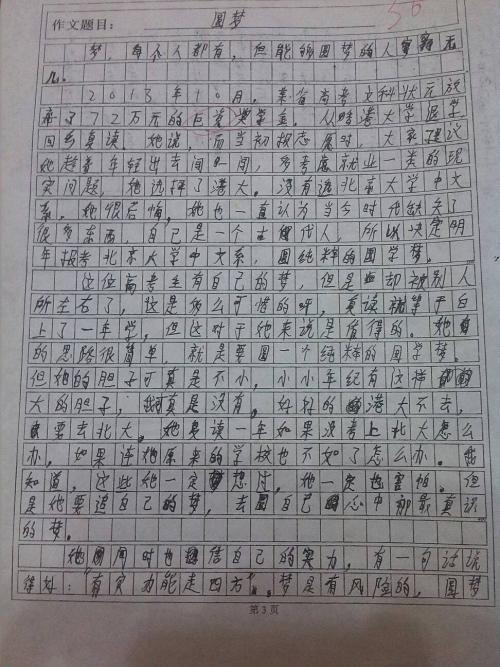 作文题目： 圆梦 50
梦，每个人都有，但能够圆梦的人寥寥无
几。
2013年10月，某省高考文科状元放
弃了72万元的巨资奖学金。从香港大学退学，
回乡复读。她说，而当初报志愿时，大家建议
她趁着年轻出去闯一闯，多考虑就业一类的现
实问题，她选择了港大。没有选北京大学中文
系，她很后悔。她也一直认为当今时代缺失了
很多东西，自己是一个古代人，所以决定明
年报考北京大学中文系，圆纯粹的国学梦。
这位高考生有自己的梦，但是却被别人
所左右了，这是多么可惜的呀，复读就等于白
上了一年学，但这对于她来说是值得的。她
的思路很简单，就是要圆一个纯粹的国学梦。
但她的胆子可真是不小，小小年纪有这样
大的胆子，我可真是没有。好好的港大不去，
要去北大。她复读一年如果没考上北大怎么
办，如果连她原来的学校也不如了怎么办。我
知道，这些她一定想过，她一定也害怕。但
是她要追自己的梦，去圆自己心中那最真实
的梦。
她同时也相信自己的实力，有一句话说
得好：“有实力能走四方”。梦是有风险的，圆梦
第3页